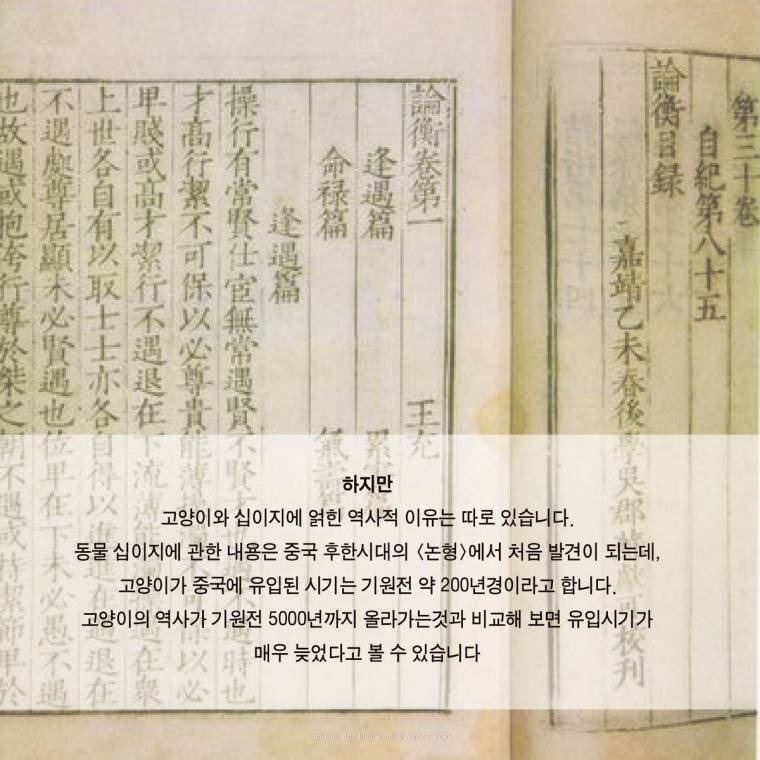 第三十卷
自紀第八十五
論衡目録
嘉靖乙未春後學吳郡蘇獻可校刊
論衡卷第一 王充
逢遇篇 累害篇
命禄篇 氣壽篇
逢遇篇
操行有常賢仕宦無常遇賢不賢才也遇不遇時也
才高行潔不可保以必尊貴能薄操濁不可保以必
卑賤或高才潔行不遇退在下流薄能濁操遇在衆
上世各自有以取士士亦各自得以進進在遇退在
不遇處尊居顯未必賢遇也位卑在下未必愚不遇
也故遇或抱洿行尊於桀之朝不遇或持潔節卑於
하지만
고양이와 십이지에 얽힌 역사적 이유는 따로 있습니다.
동물 십이지에 관한 내용은 중국 후한시대의 <논형>에서 처음 발견이 되는데,
고양이가 중국에 유입된 시기는 기원전 약 200년경이라고 합니다.
고양이의 역사가 기원전 5000년까지 올라가는것과 비교해 보면 유입시기가
매우 늦었다고 볼 수 있습니다